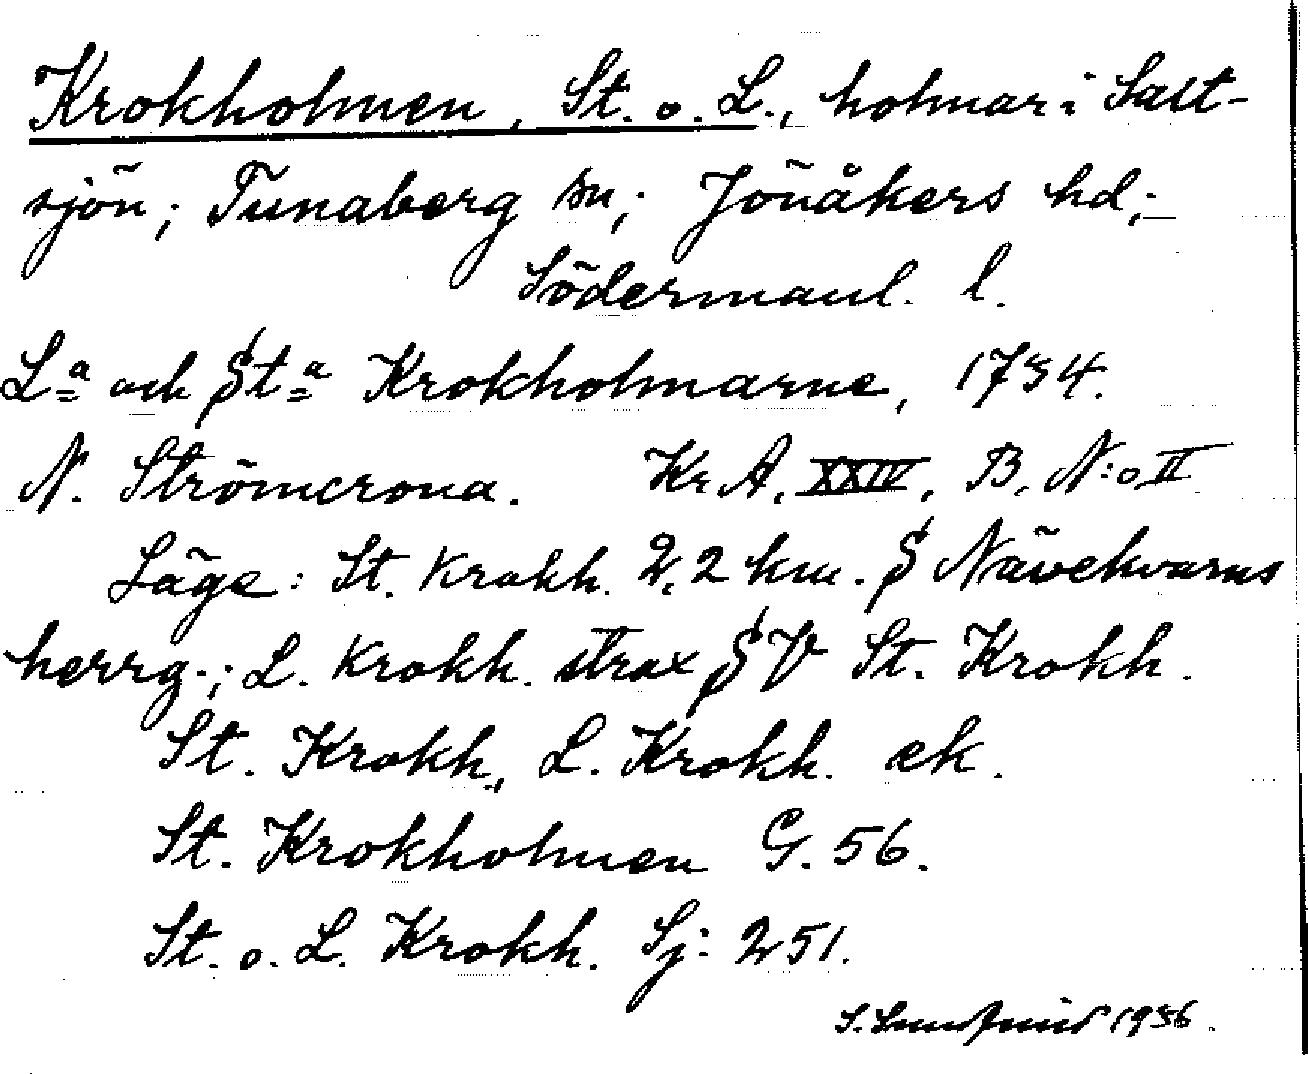 Krokholmen, St. o. L., holmar i Salt-
sjön; Tunaberg sn; Jönåkers hd;
Södermanl. l.
La och Sta Krokholmarne, 1734.
N. Strömcrona. Kr. A. XXIV, B, N:o II
Läge: St. Krokh. 2,2 km. S Nävekvarns
herrg.; L. Krokh. strax SV St. Krokh.
St. Krokh, L. Krokh. ek.
St. Krokholmen G. 56.
St. o. L. Krokh. Sj: 251.
S. 1936.